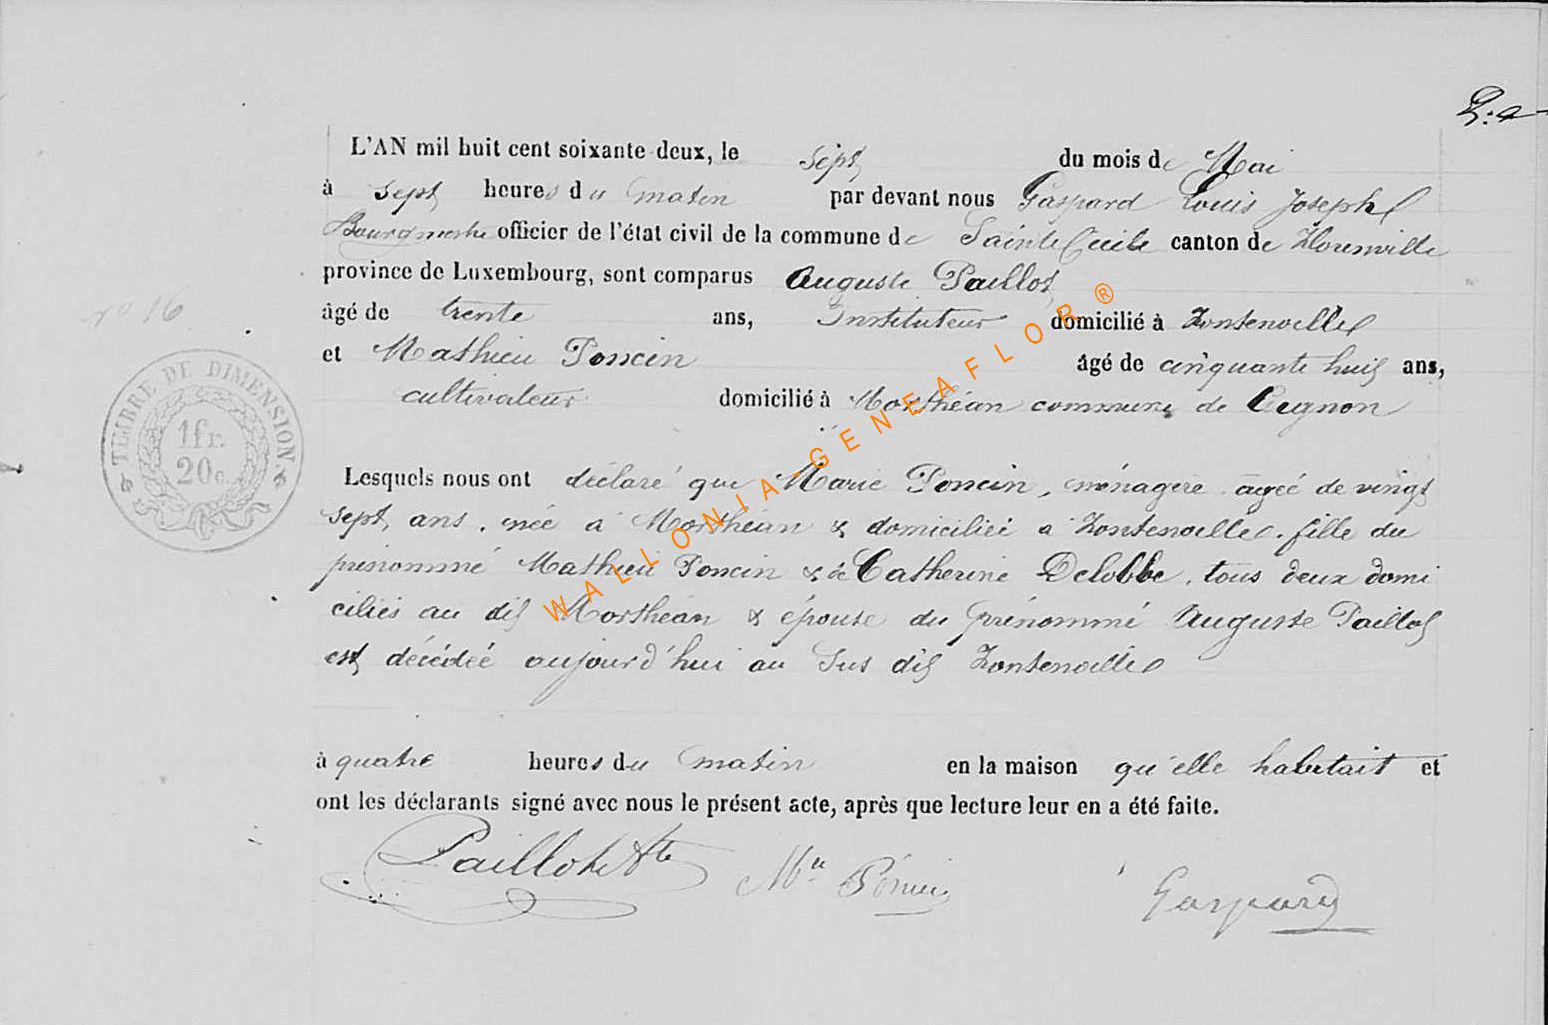 L'AN mil huit cent soixante deux, le sept du mois de Mai
à sept heures du matin par devant nous Gaspard Louis Joseph
Bourgmestre officier de l'état civil de la commune de Sainte Cécile canton de Florenville
province de Luxembourg, sont comparus Auguste Paillot
âgé de trente ans, Instituteur domicilié à Fontenoille
n° 16
et Mathieu Poncin âgé de cinquante huit ans,
cultivateur domicilié à Morthéan commune de Cugnon
TIMBRE DE DIMENSION.
1 fr.
20 c.
Lesquels nous ont déclaré que Marie Poncin, ménagère agée de vingt
sept ans, née à Morthéan & domiciliée à Fontenoille, fille du
prénommé Mathieu Poncin & de Catherine Delobbe, tous deux domi
ciliés au dit Morthéan & épouse du prénommé Auguste Paillot
est décédée aujourd'hui au sus dit Fontenoille
à quatre heures du matin en la maison qu'elle habitait et
ont les déclarants signé avec nous le présent acte, après que lecture leur en a été faite.
Paillot Ate Mu Poncin Gaspard
WALLONIA-GENEAFLOR®